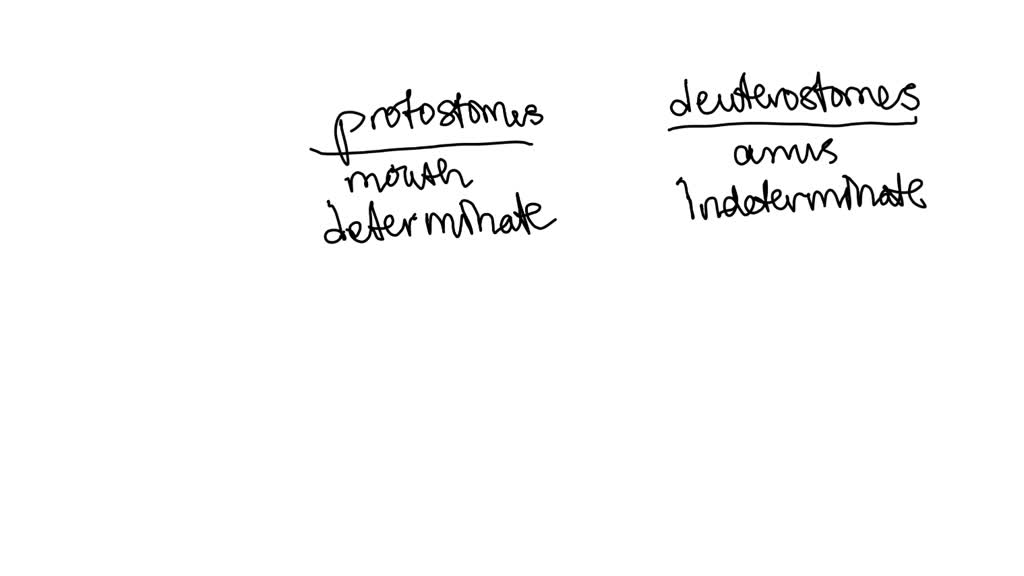 protostomes
mouth
determinate
deuterostomes
anus
indeterminate